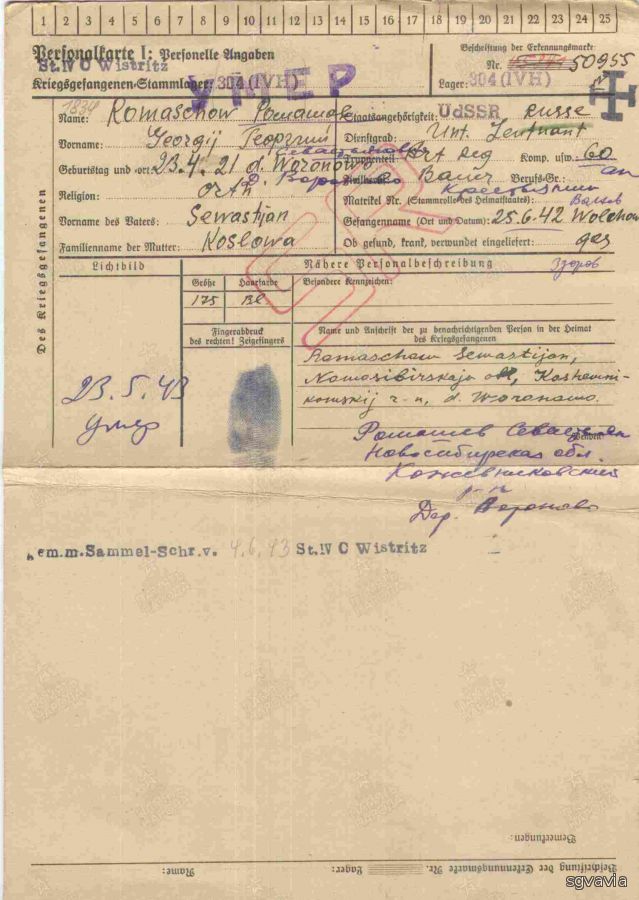 1 2 3 4 5 6 7 8 9 10 11 12 13 14 15 16 17 18 19 20 21 22 23 24 25
Personalkarte I: Personelle Angaben
St. IV C Wistritz
Kriegsgefangenen-Stammlager: 304 (IV H)
УМЕР
Beschriftung der Erkennungsmarke
Nr. 50955
Lager: 304 (IV H)
1834
Des Kriegsgefangenen
Name: Romaschow Ромашов
Vorname: Georgij Георгий
Севастьянович
Geburtstag und -ort: 23.4.21 d. Woronowo
Д. Вороново
Religion: Orth
Vorname des Vaters: Sewastjan
Familienname der Mutter: Koslowa
Staatsangehörigkeit: UdSSR Russe
Dienstgrad: Unt. Leutnant
Truppenteil: Art Reg Komp. usw.: 60
Bauer Berufs-Gr.:
Крестьянин
Matrikel Nr. (Stammrolle des Heimatstaates):
Gefangennahme (Ort und Datum): 25.6.42 Wolchow
Ob gesund, krank, verwundet eingeliefert: ges
Здоров
Lichtbild
23.5.43
умер
Nähere Personalbeschreibung
Größe Haarfarbe Besondere Kennzeichen:
175 Bl.
Fingerabdruck
des rechten! Zeigefingers
Name und Anschrift der zu benachrichtigenden Person in der Heimat
des Kriegsgefangenen
Romaschow Sewastijan,
Nowosibirskaja obl, Koshewni-
kowskij r-n, d. Woronowo.
Ромашев Севастьян
Новосибирская обл.
Кожевниковский
р-н
Дер. Вороново
em.m.Sammel-Schr.v. 4.6.43 St. IV C Wistritz
Bemerkungen:
Beschriftung der Erkennungsmarke Nr. Lager: Name:
sgvavia